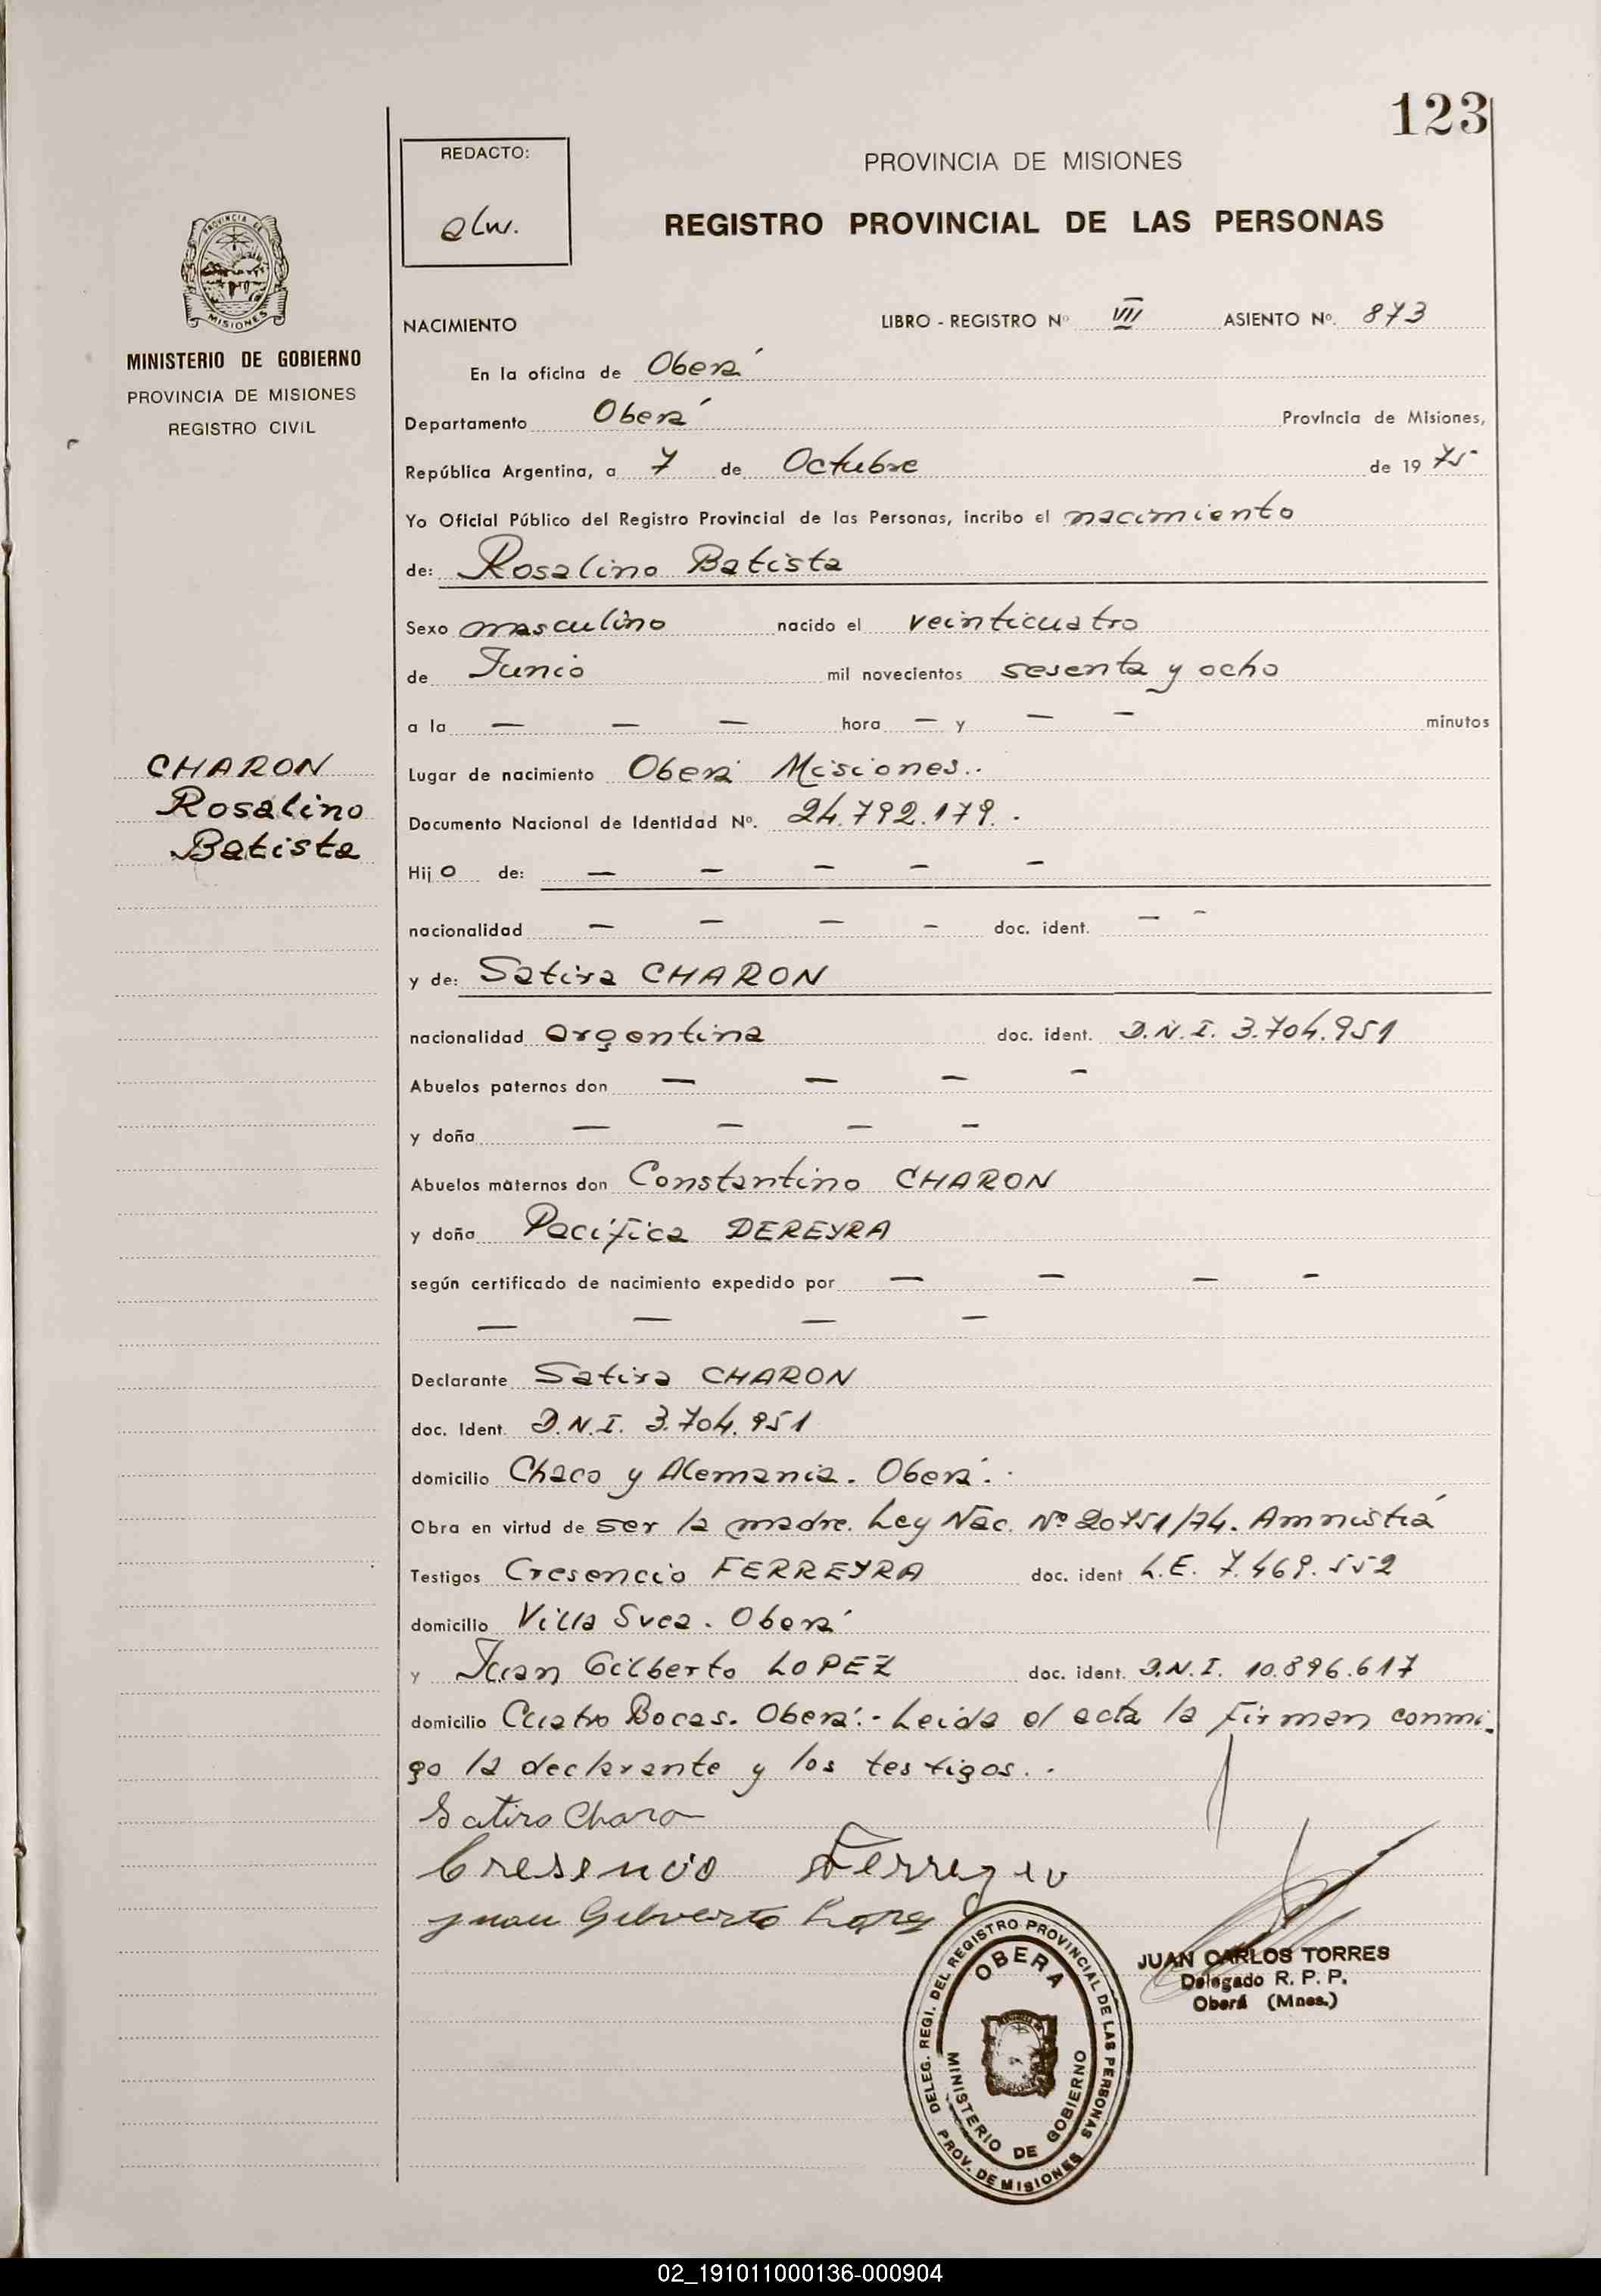 123
REDACTO:
elw.
PROVINCIA DE MISIONES
REGISTRO PROVINCIAL DE LAS PERSONAS
PROVINCIA DE
MISIONES
MINISTERIO DE GOBIERNO
PROVINCIA DE MISIONES
REGISTRO CIVIL
NACIMIENTO LIBRO - REGISTRO Nº VII ASIENTO Nº. 873
En la oficina de Oberá
Departamento Oberá Provincia de Misiones,
República Argentina, a 7 de Octubre de 19 75
Yo Oficial Público del Registro Provincial de las Personas, incribo el nacimiento
de: Rosalino Batista
Sexo masculino nacido el veinticuatro
de Junio mil novecientos sesenta y ocho
a la — — — hora — y — — minutos
CHARON
Rosalino
Batista
Lugar de nacimiento Oberá Misiones..
Documento Nacional de Identidad Nº. 24.792.179. .
Hij o de: — — — — —
nacionalidad — — — — doc. ident. — —
y de: Satira CHARON
nacionalidad argentina doc. ident. D.N.I. 3.704.951
Abuelos paternos don — — — —
y doña — — — —
Abuelos maternos don Constantino CHARON
y doña Pacífica DEREYRA
según certificado de nacimiento expedido por — — — —
— — — —
Declarante Satira CHARON
doc. Ident. D.N.I. 3.704.951
domicilio Chaco y Alemania. Oberá. .
Obra en virtud de ser la madre. Ley Nac. Nº 20751/74. Amnistiá
Testigos Cresencio FERREYRA doc. ident L.E. 7.469.552
domicilio Villa Svea. Oberá
y Juan Gilberto LOPEZ doc. ident. D.N.I. 10.896.617
domicilio Cuatro Bocas. Oberá.- Leida el acta la firman conmi-
go la declarante y los testigos. .
Satira Charon
Cresencio Ferreyra
Juan Gilverto Lopez
DELEG. REGI. DEL REGISTRO PROVINCIAL DE LAS PERSONAS
PROV. DE MISIONES
OBERA
MINISTERIO DE GOBIERNO
JUAN CARLOS TORRES
Delegado R. P. P.
Oberá (Mnes.)
02_191011000136-000904